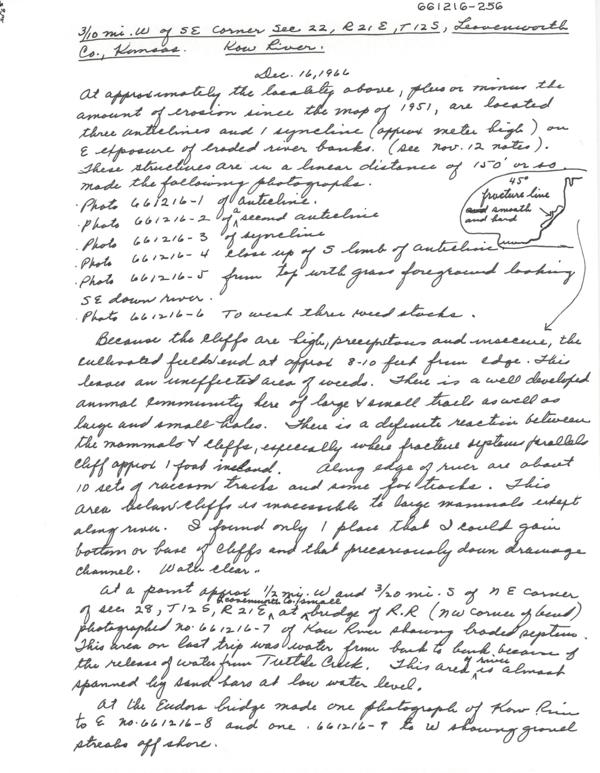 661216-256
3/10 mi. W of SE Corner Sec 22, R21E, T12S, Leavenworth
Co., Kansas. Kaw River.
Dec. 16, 1966
At approximately the locality above, plus or minus the
amount of erosion since the map of 1951, are located
three anticlines and 1 syncline (approx meter high) on
E exposure of eroded river banks. (see Nov. 12 notes).
These structures are in a linear distance of 150' or so
made the following photographs.
45°
fracture line
and smooth
and hard
· Photo 661216-1 of anticline.
· Photo 661216-2 of second anticline
· Photo 661216-3 of syncline
· Photo 661216-4 close up of S limb of anticline
· Photo 661216-5 from top with grass foreground looking
SE down river.
· Photo 661216-6 To west three weed stocks.
Because the cliffs are high, precipitous and insecure, the
cultivated fields end at approx 8-10 feet from edge. This
leaves an uneffected area of weeds. There is a well developed
animal community here of large & small trails as well as
large and small holes. There is a definite reaction between
the mammals & cliffs, especially where fracture systems parallels
cliff approx 1 foot inland. Along edge of river are about
10 sets of raccoon tracks and some fox tracks. This
area below cliffs is inaccessible to large mammals except
along river. I found only 1 place that I could gain
bottom or base of cliffs and that precariously down drainage
channel. Water clear.
At a point approx 1/2 mi. W and 3/20 mi. S of NE corner
of sec. 28, T12S, R21E, Leavenworth Co. at small bridge of R.R (NW corner of bend)
photographed no. 661216-7 of Kaw River showing braded system.
This area on last trip was water from bank to bank because of
the release of water from Tuttle Creek. This area of river is almost
spanned by sand bars at low water level.
At the Eudora bridge made one photograph of Kaw River
to E no. 661216-8 and one . 661216-9 to W showing gravel
streaks off shore.